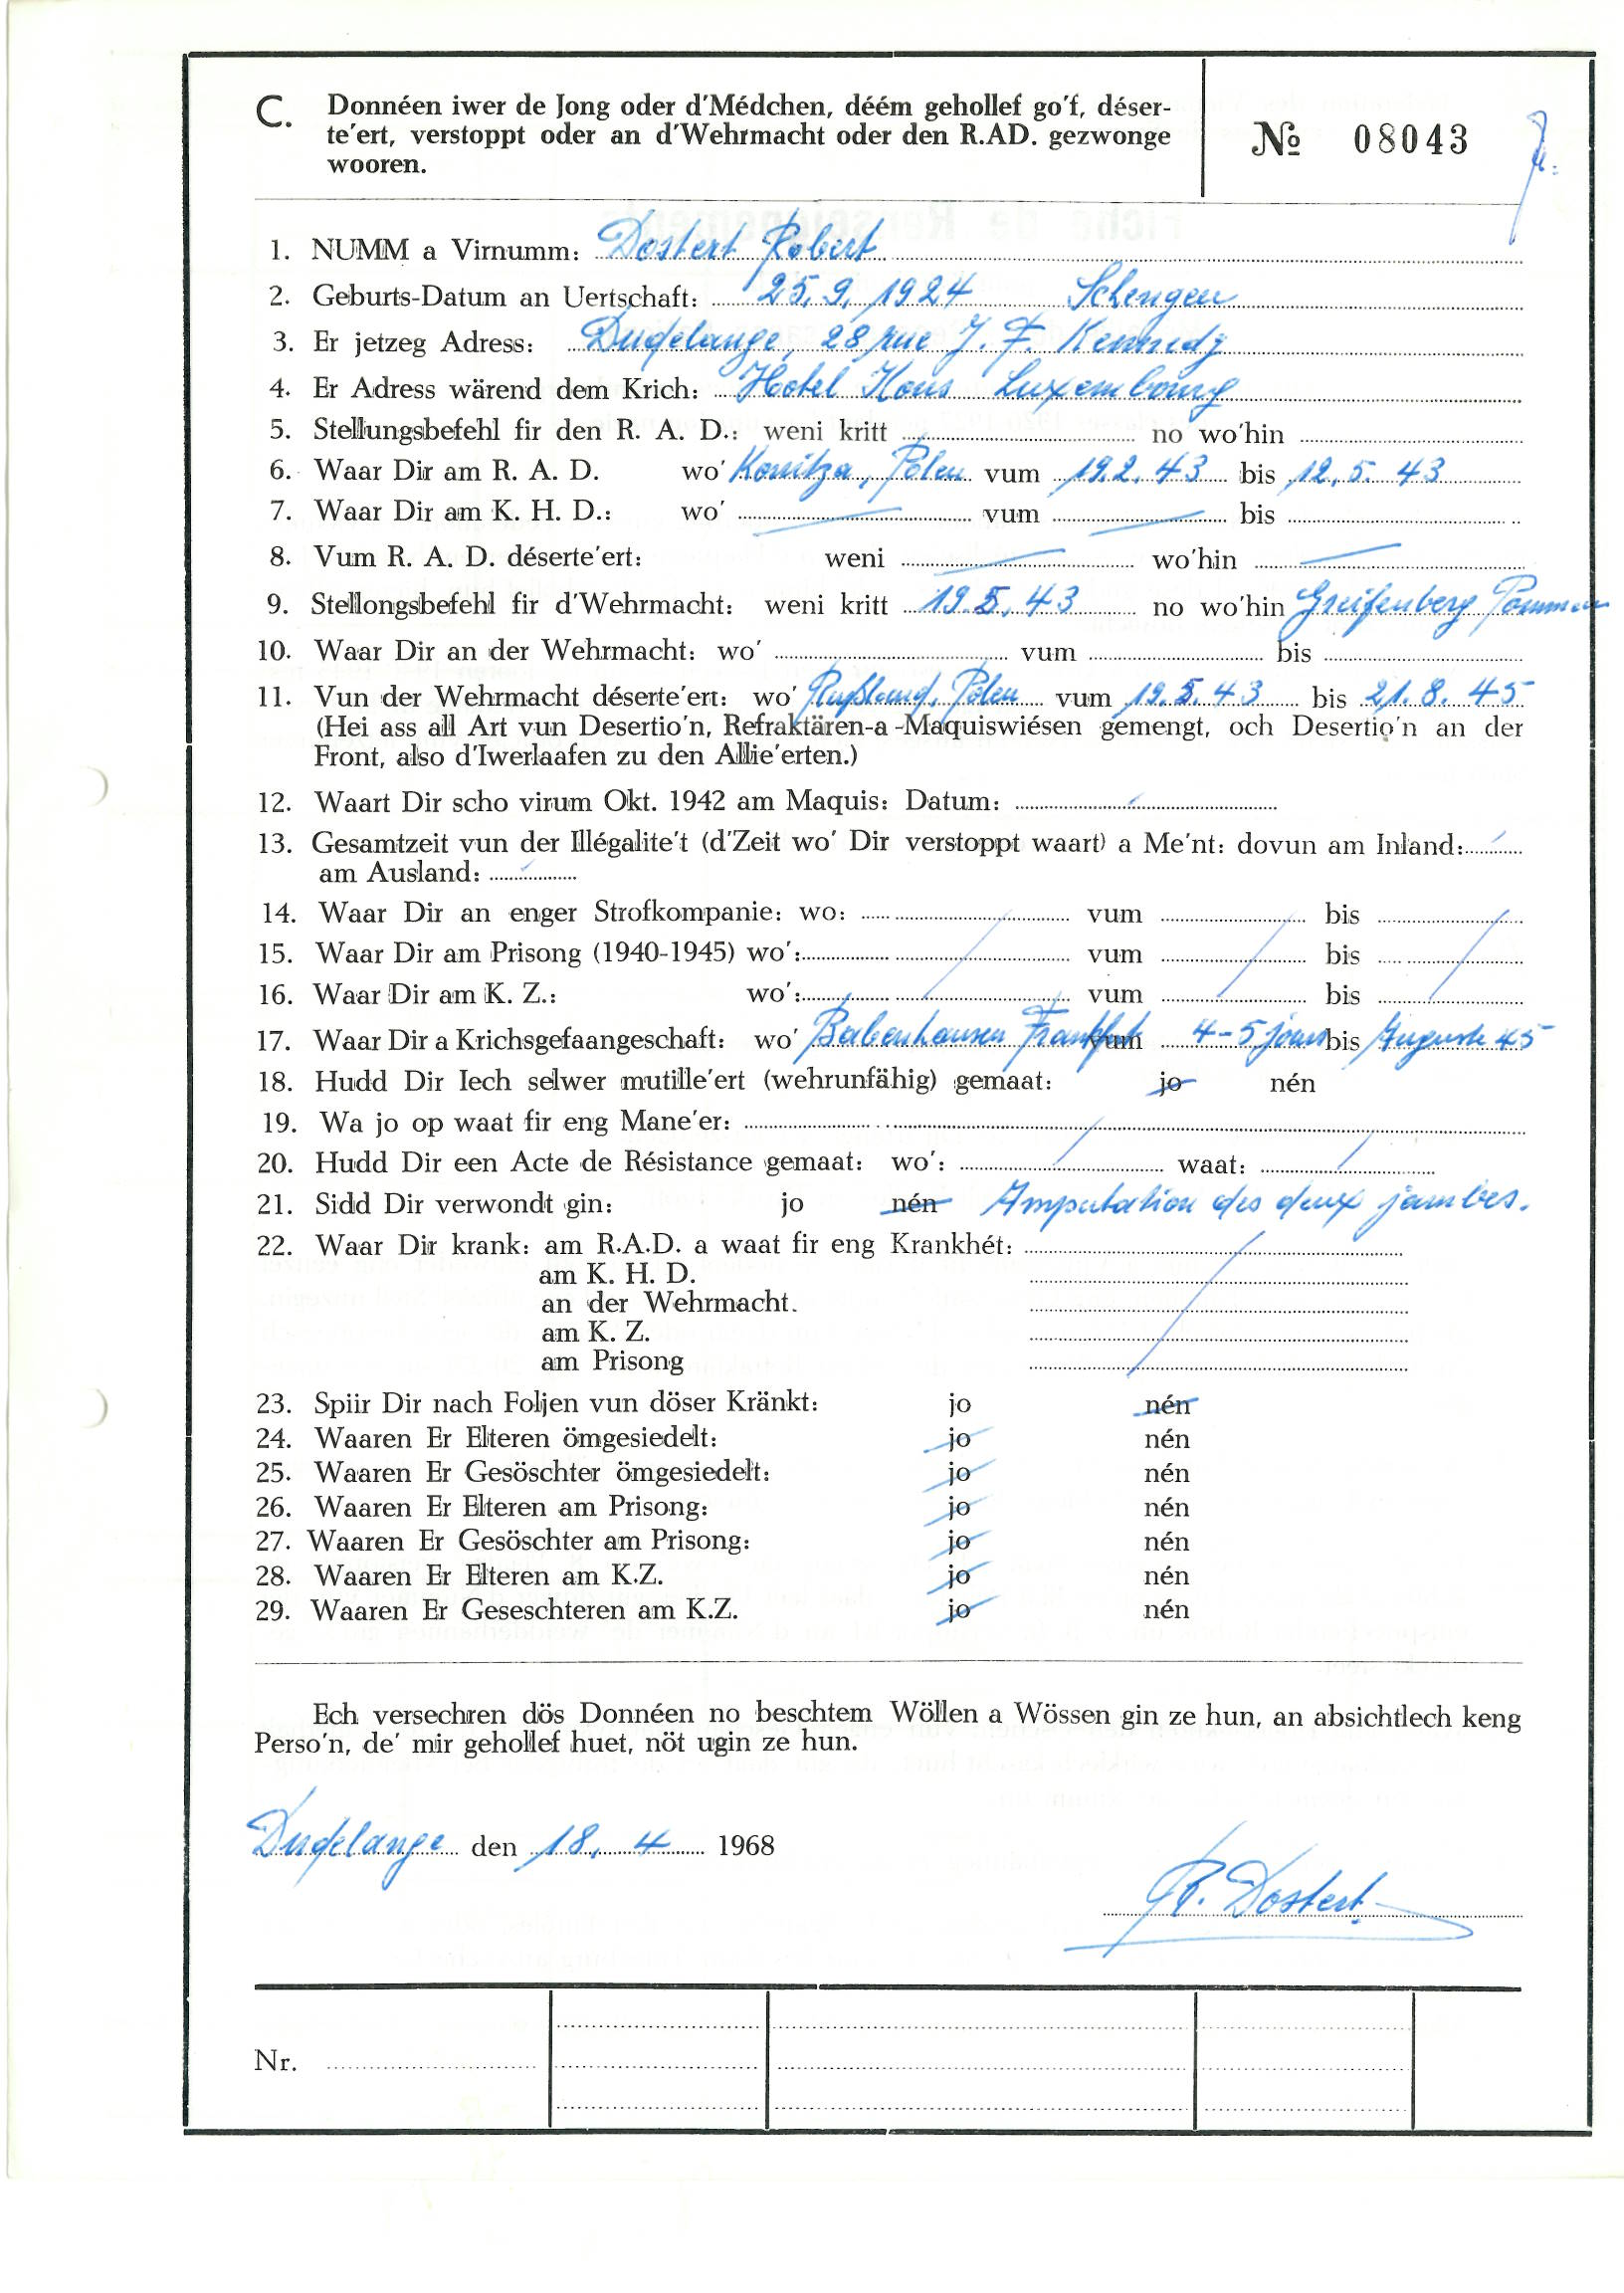 C. Donnéen iwer de Jong oder d'Médchen, déém gehollef go'f, déser-
te'ert, verstoppt oder an d'Wehrmacht oder den R.AD. gezwonge
wooren.
№ 08043
1. NUMM a Virnumm: Dostert Robert
2. Geburts-Datum an Uertschaft: 25.9.1924 Schengen
3. Er jetzeg Adress: Dudelange, 28 rue J. F. Kennedy
4. Er Adress wärend dem Krich: Hotel Kons Luxembourg
5. Stellungsbefehl fir den R. A. D.: weni kritt no wo'hin
6. Waar Dir am R. A. D. wo' Konitza, Polen vum 19.2.43 bis 12.5.43
7. Waar Dir am K. H. D.: wo' vum bis
8. Vum R. A. D. déserte'ert: weni wo'hin
9. Stellongsbefehl fir d'Wehrmacht: weni kritt 19.5.43 no wo'hin Greifenberg Pommern
10. Waar Dir an der Wehrmacht: wo' vum bis
11. Vun der Wehrmacht déserte'ert: wo' Rußland, Polen vum 19.5.43 bis 21.8.45
(Hei ass all Art vun Desertio'n, Refraktären-a-Maquiswiésen gemengt, och Desertio'n an der
Front, also d'Iwerlaafen zu den Allie'erten.)
12. Waart Dir scho virum Okt. 1942 am Maquis: Datum:
13. Gesamtzeit vun der Illégalite't (d'Zeit wo' Dir verstoppt waart) a Me'nt: dovun am Inland:
am Ausland:
14. Waar Dir an enger Strofkompanie: wo: vum bis
15. Waar Dir am Prisong (1940-1945) wo': vum bis
16. Waar Dir am K. Z.: wo': vum bis
17. Waar Dir a Krichsgefaangeschaft: wo' Babenhausen Frankfuh vum 4-5 jours bis Auguste 45
18. Hudd Dir Iech selwer mutille'ert (wehrunfähig) gemaat: jo nén
19. Wa jo op waat fir eng Mane'er:
20. Hudd Dir een Acte de Résistance gemaat: wo': waat:
21. Sidd Dir verwondt gin: jo nén Amputation des deux jambes.
22. Waar Dir krank: am R.A.D. a waat fir eng Krankhét:
am K. H. D.
an der Wehrmacht.
am K. Z.
am Prisong
23. Spiir Dir nach Foljen vun döser Kränkt: jo nén
24. Waaren Er Elteren ömgesiedelt: jo nén
25. Waaren Er Gesöschter ömgesiedelt: jo nén
26. Waaren Er Elteren am Prisong: jo nén
27. Waaren Er Gesöschter am Prisong: jo nén
28. Waaren Er Elteren am K.Z. jo nén
29. Waaren Er Geseschteren am K.Z. jo nén
Ech versechren dös Donnéen no beschtem Wöllen a Wössen gin ze hun, an absichtlech keng
Perso'n, de' mir gehollef huet, nöt ugin ze hun.
Dudelange den 18. 4 1968
R. Dostert
Nr.